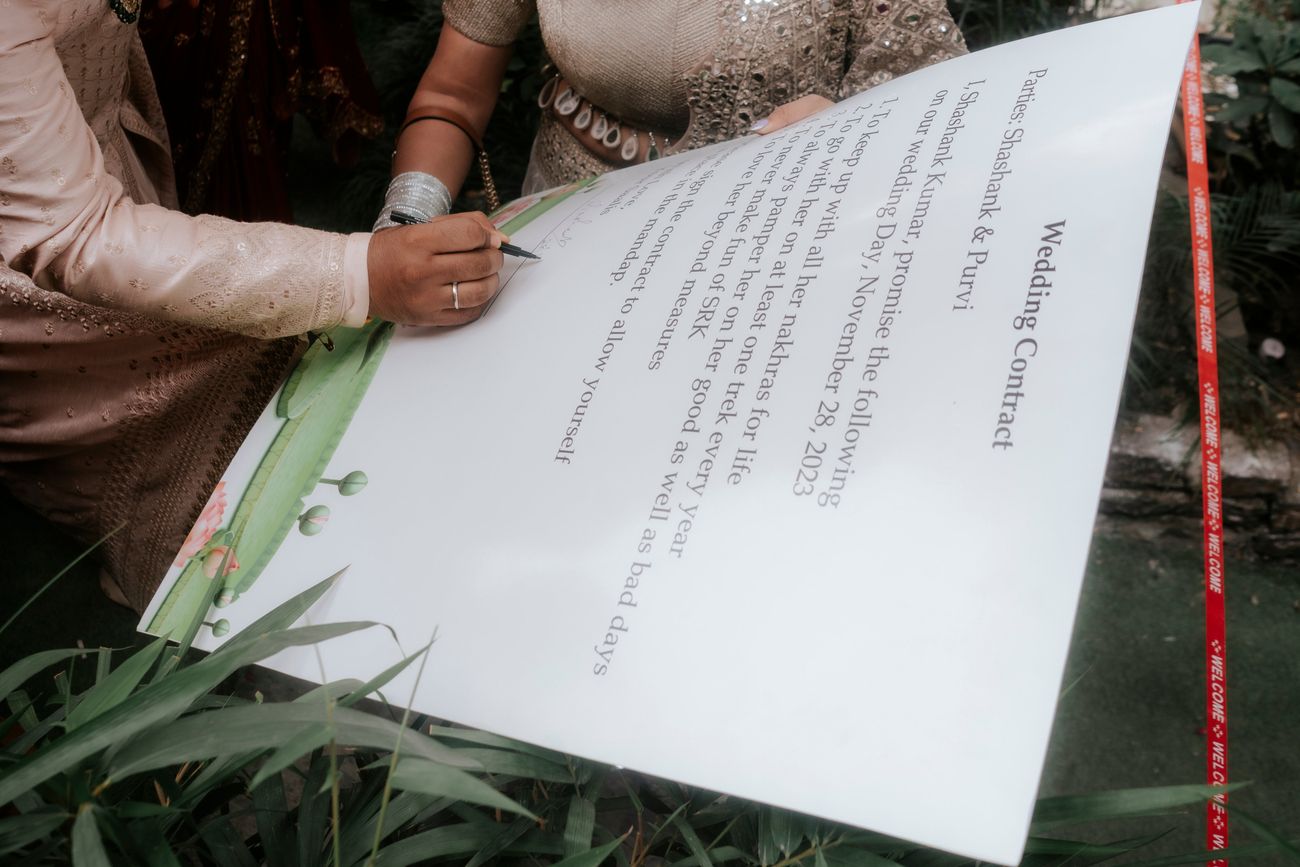 Wedding Contract
Parties: Shashank & Purvi
I, Shashank Kumar, promise the following
on our wedding Day, November 28, 2023
1. To keep up with all her nakhras for life
2. To go with her on at least one trek every year
To always pamper her on her good as well as bad days
To never make fun of SRK
love her beyond measures
sign the contract to allow yourself
in the mandap.
Love,
WELCOME WELCOME WELCOME WELCOME WELCOME WELCOME WELCOME WELCOME WELCOME